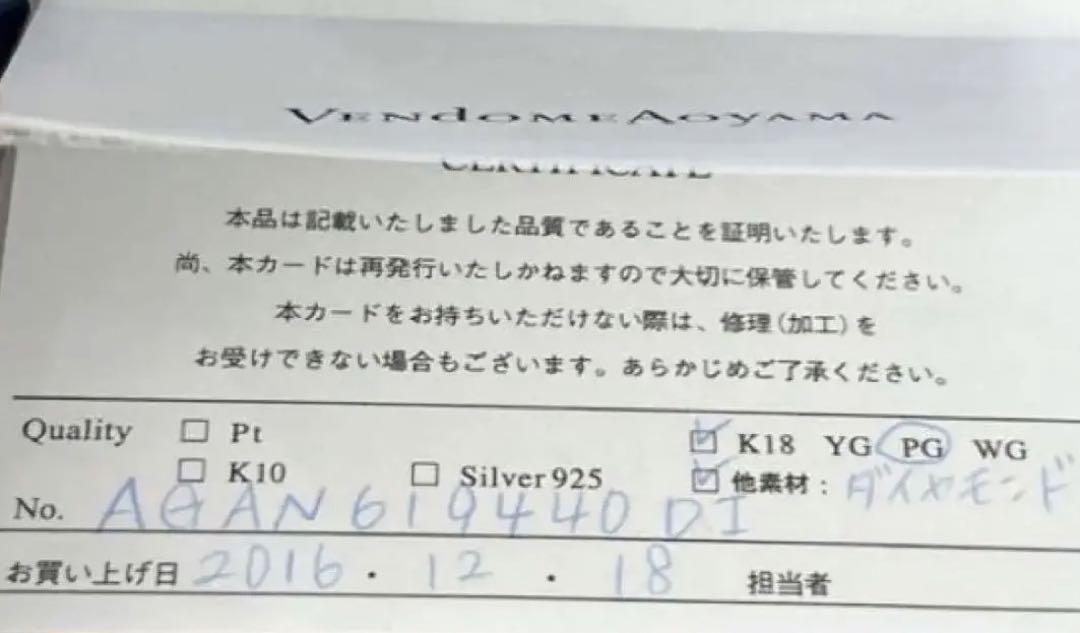 VENDOMEAOYAMA
CERTIFICATE
本品は記載いたしました品質であることを証明いたします。
尚、本カードは再発行いたしかねますので大切に保管してください。
本カードをお持ちいただけない際は、修理(加工)を
お受けできない場合もございます。あらかじめご了承ください。
Quality □ Pt ☑ K18 YG PG WG
□ K10 □ Silver925 ☑ 他素材：ダイヤモンド
No. AGAN619440DI
お買い上げ日 2016・12・18 担当者